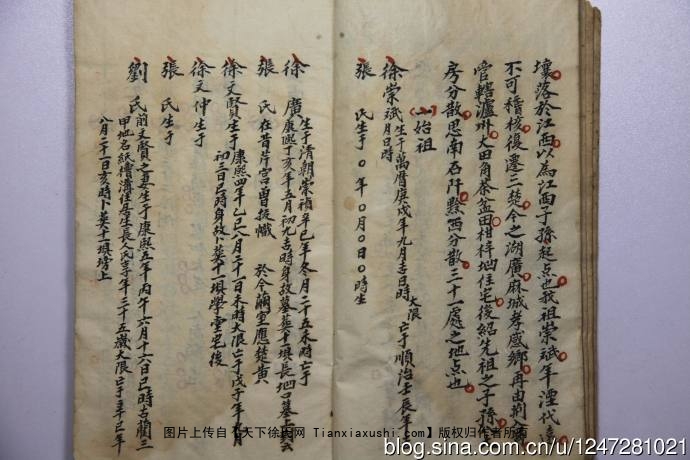 壤落於江西以為江西子孫起点也我祖崇珷年湮代遠
不可稽核後遷二楚今之湖廣麻城孝感鄉再由荊入
管轄瀘州大田角茶盆田柑梓坳住宅後紹先祖之子孫
房分散思南石阡黔西分散三十一處之地点也
一始祖
徐崇珷生于萬曆庚戌年九月吉日時大限亡于順治壬長年
月日時
張 氏生于〇年〇月〇日〇時生
徐 廣生于清朝崇禎辛巳年冬月二十五未時亡于
康熙丁亥年五月初九吉時身故墓英十一塤長坳口墓上云
張 氏在昔芹宫曽拔幟 於今繭室應楚黄
徐文賢生于康熙四年乙巳八月二十一日未時大限亡于戊子年月
初三日巳時身故卜英十一塤學堂宅後
徐文仲生于
張 氏生于
劉 氏前文賢之妻生于康熙五年丙午六月十六日巳時古藺三
甲地名紙槽溝住居生長人氏享年三十五歲大限亡于辛巳年
八月二十一日亥時卜英十一塤塝上
图片上传自【天下徐氏网 Tianxiaxushi.com】版权归作者所有
blog.sina.com.cn/u/1247281021